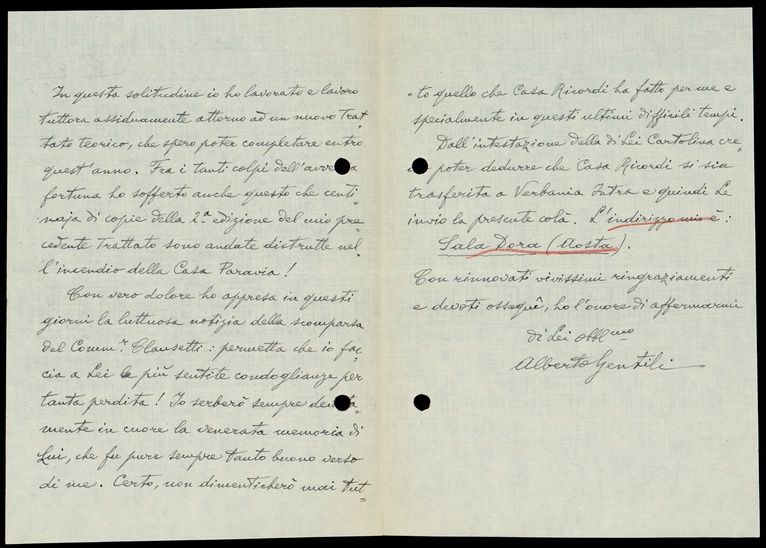 In questa solitudine io ho lavorato e lavoro
tuttora assiduamente attorno ad un nuovo Trat=
tato teorico, che spero poter completare entro
quest'anno. Fra i tanti colpi dell'avversa
fortuna ho sofferto anche questo che centi=
naja di copie della 2ª edizione del mio pre=
cedente Trattato sono andate distrutte nel=
l'incendio della Casa Paravia!
Con vero dolore ho appresa in questi
giorni la luttuosa notizia della scomparsa
del Comm.r Clausetti: permetta che io fac=
cia a Lei le più sentite condoglianze per
tanta perdita! Io serberò sempre devota=
mente in cuore la venerata memoria di
Lui, che fu pure sempre tanto buono verso
di me. Certo, non dimenticherò mai tut=
=to quello che Casa Ricordi ha fatto per me e
specialmente in questi ultimi difficili tempi.
Dall'intestazione della di Lei Cartolina cre=
do poter dedurre che Casa Ricordi si sia
trasferita a Verbania Intra e quindi Le
invio la presente colà. L'indirizzo mio è:
Sala Dora (Aosta).
Con rinnovati vivissimi ringraziamenti
e devoti ossequî, ho l'onore di affermarmi
di Lei obbl.mo
Alberto Gentili